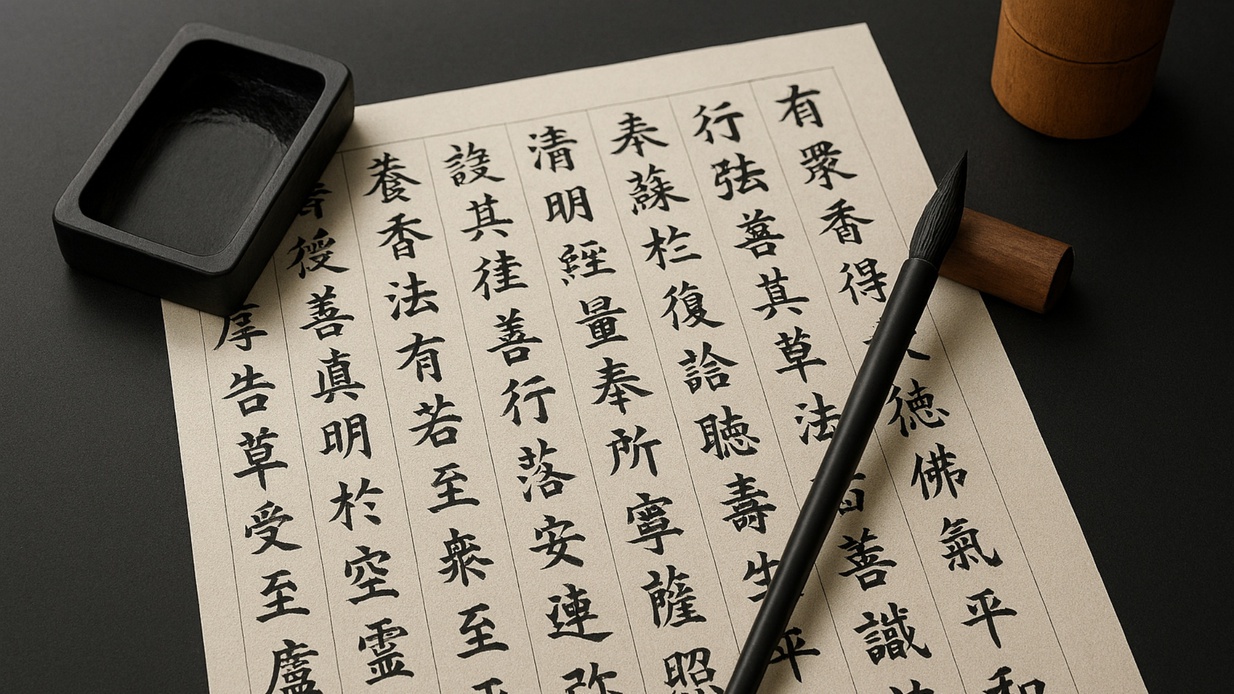 有眾香得德佛氣平和
行善其草法善識
奉復詥聴壽生平
清明經量奉所寧薩照
設其徍善行落安連弥
香法有若至衆至
善真明於空霊
厚告草受至盧